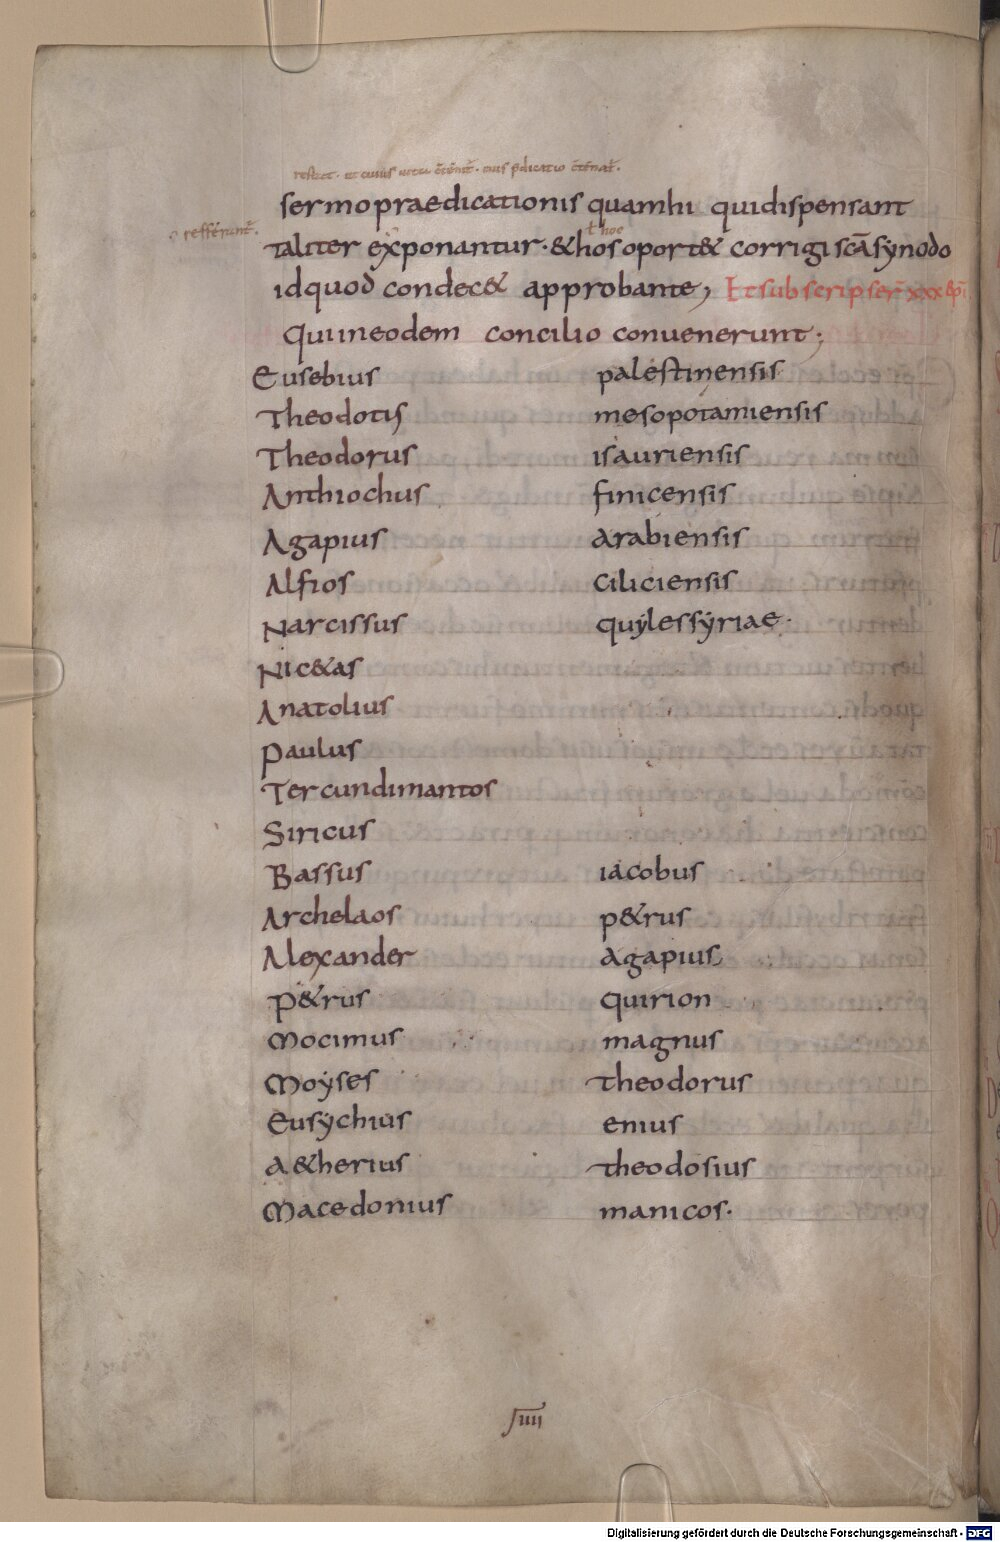 sermo praedicationis quam hi qui dispensant
taliter exponantur · & hos oport& corrigi scā synodo
id quod condec& approbante; Et subscripser̄ xxx ep̄i
Qui in eodem concilio convenerunt;
Eusebius palestinensis
Theodotis mesopotamiensis
Theodorus isauriensis
Anthiochus finicensis
Agapius arabiensis
Alfios ciliciensis
Narcissus quÿlessÿriae ·
Nic&as
Anatolius
Paulus
Tercundimantos
Siricus
Bassus iacobus
Archelaos p&rus
Alexander agapius
P&rus quirion
Mocimus magnus
Moÿses theodorus
Eusÿchius enius
A&herius theodosius
Macedonius manicos ·
Digitalisierung gefördert durch die Deutsche Forschungsgemeinschaft - DFG